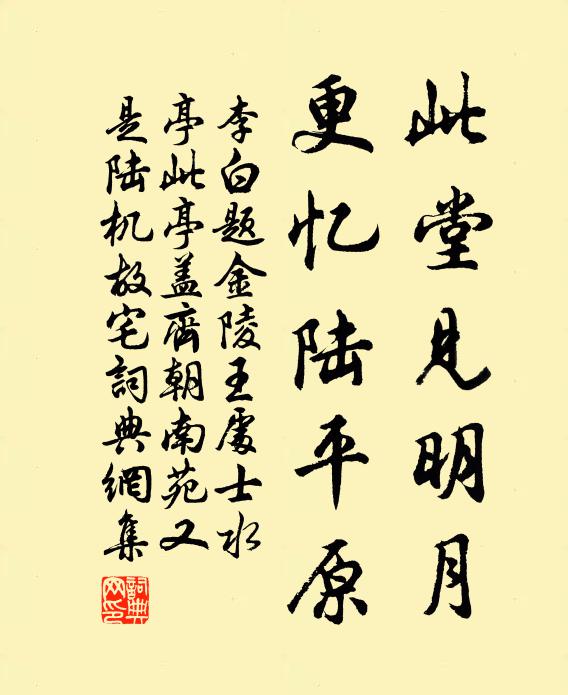 此堂见明月
更忆陆平原
李白题金陵王處士水
亭此亭盖齊朝南苑又
是陆机故宅詞典網集
詞典网印